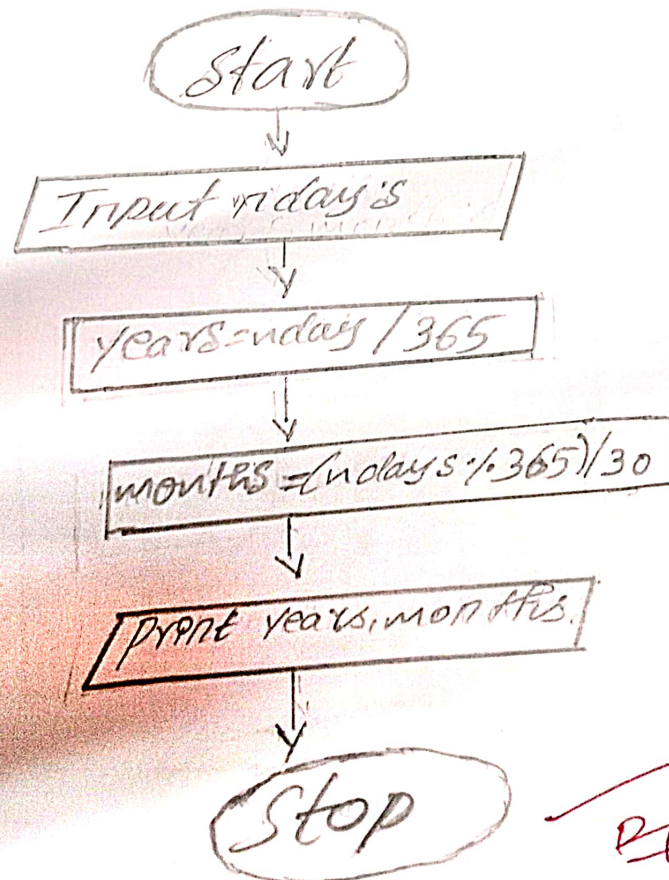 Start
Input nday's
years=nday/365
months=(ndays%365)/30
print years, months.
Stop